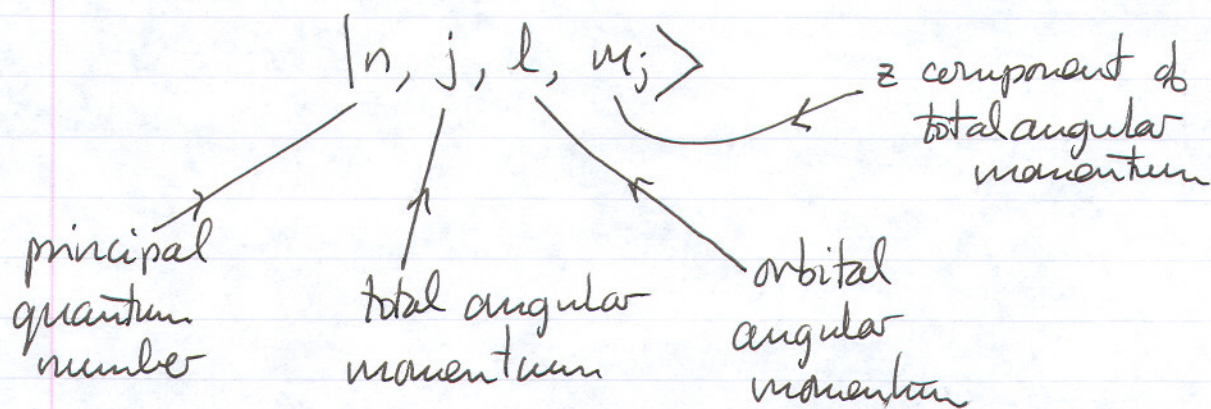 |n, j, l, mj>
z component of
total angular
momentum
principal
quantum
number
total angular
momentum
orbital
angular
momentum